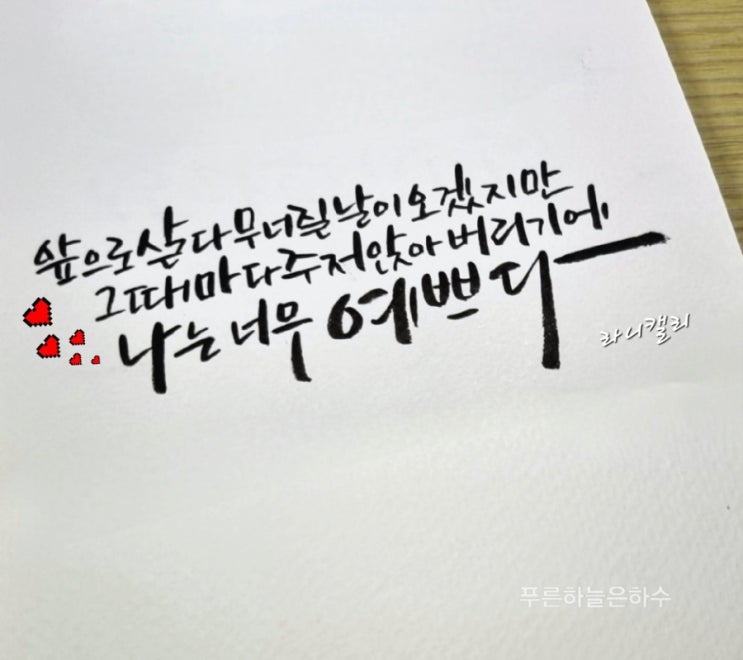 앞으로 살다 무너릴 날이 오겠지만
그때마다 주저앉아 버리기에
나는 너무 예쁘다
라니캘리
푸른하늘은하수